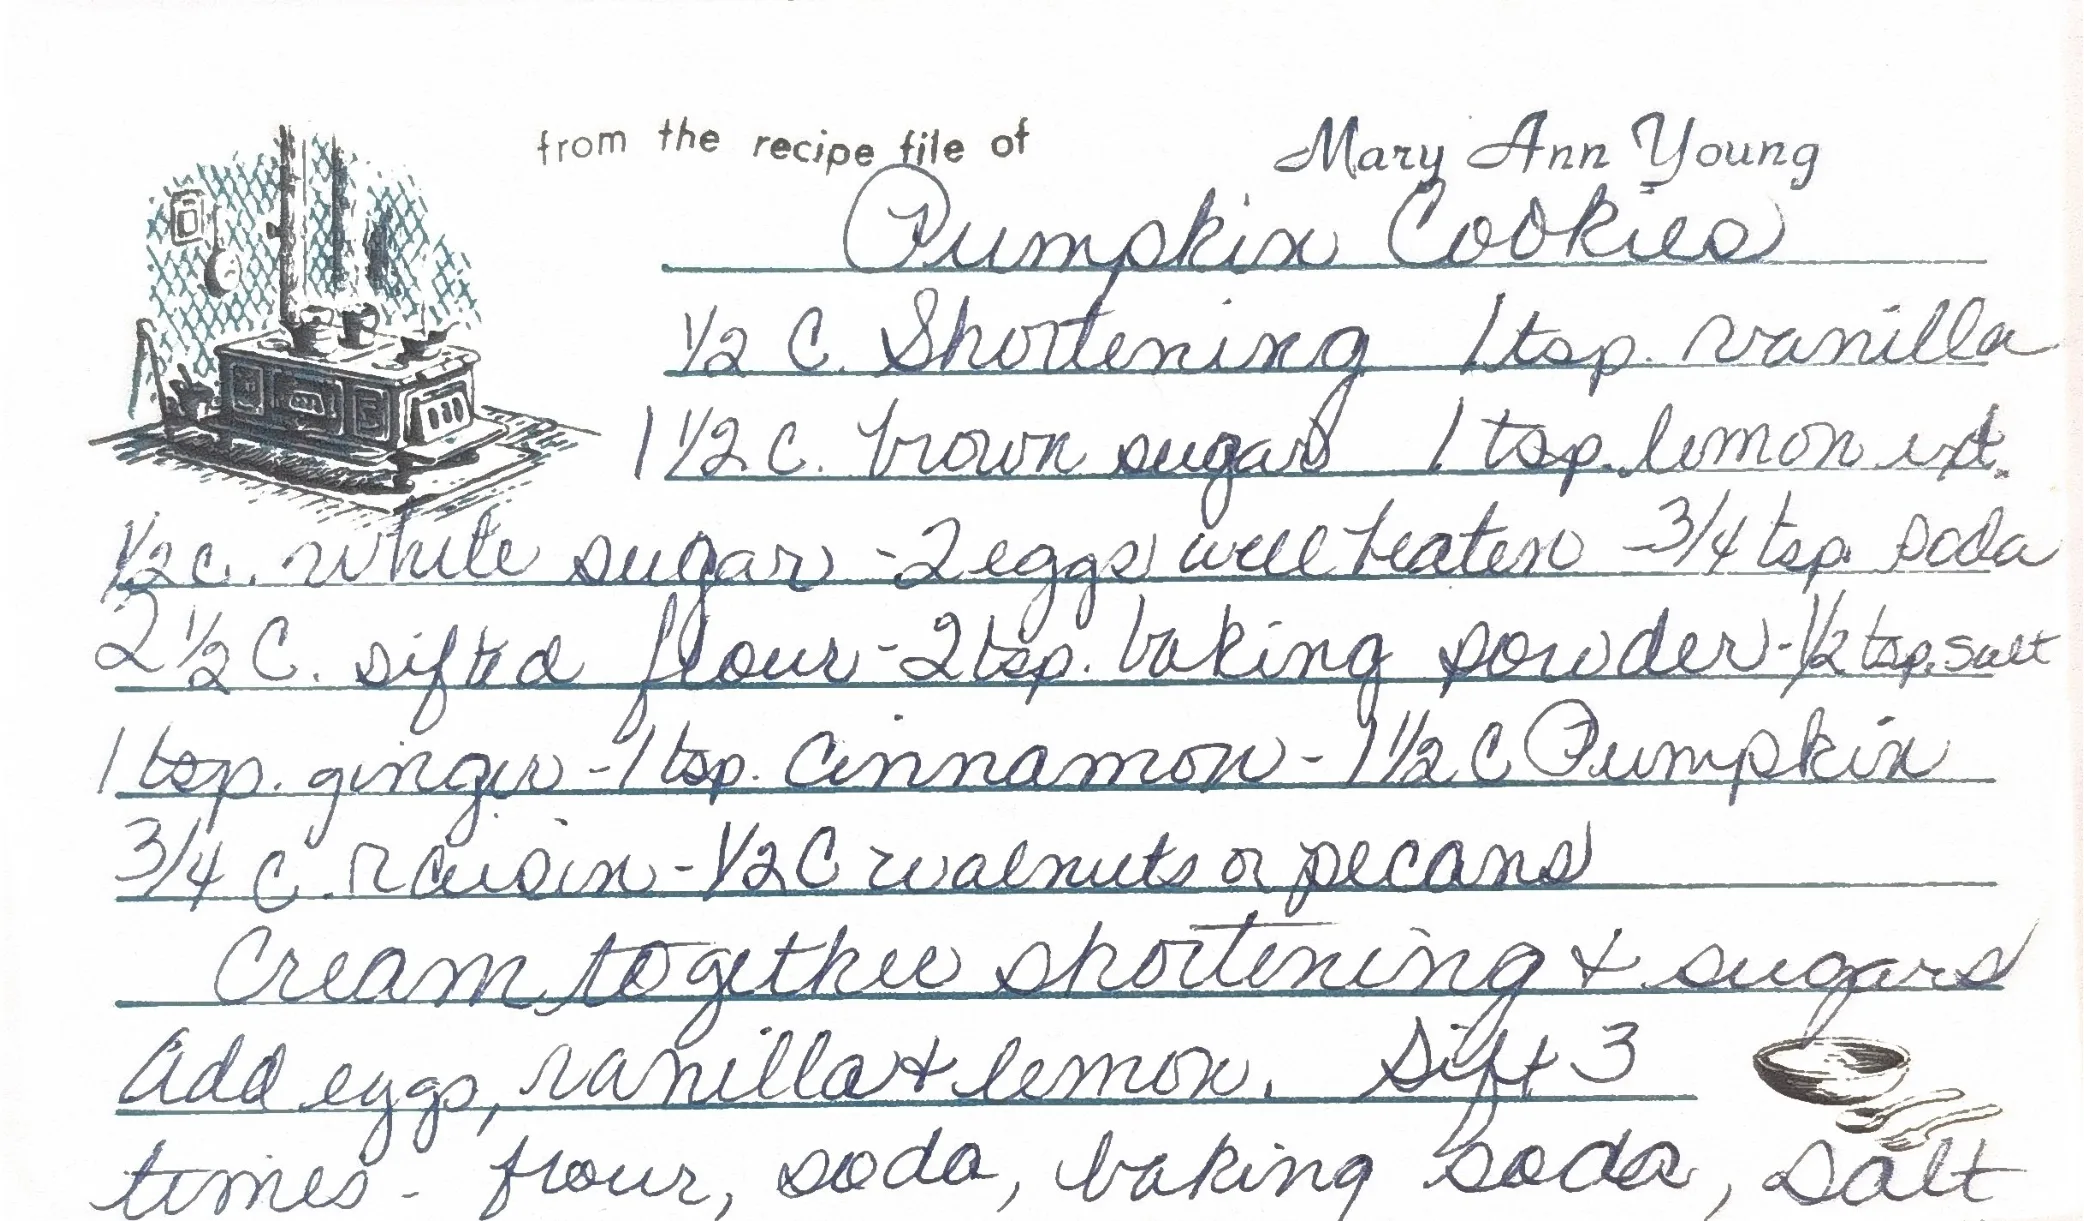 from the recipe file of Mary Ann Young
Pumpkin Cookies
1/2 C. Shortening 1 tsp. vanilla
1 1/2 C. brown sugar 1 tsp. lemon ext.
1/2 c. white sugar - 2 eggs well beaten - 3/4 tsp. soda
2 1/2 C. sifted flour - 2 tsp. baking powder - 1/2 tsp. salt
1 tsp. ginger - 1 tsp. Cinnamon - 1 1/2 C Pumpkin
3/4 C. raisin - 1/2 C walnuts or pecans
Cream together shortening & sugars
Add eggs, vanilla & lemon. Sift 3
times - flour, soda, baking soda, salt